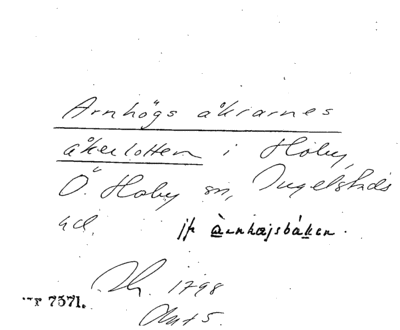 Arnhögs åkrarnes
åkerlotten i Hoby,
Ö. Hoby sn, Ingelstads
hd. jfr àrnhøjsbáken.
1798
7571.